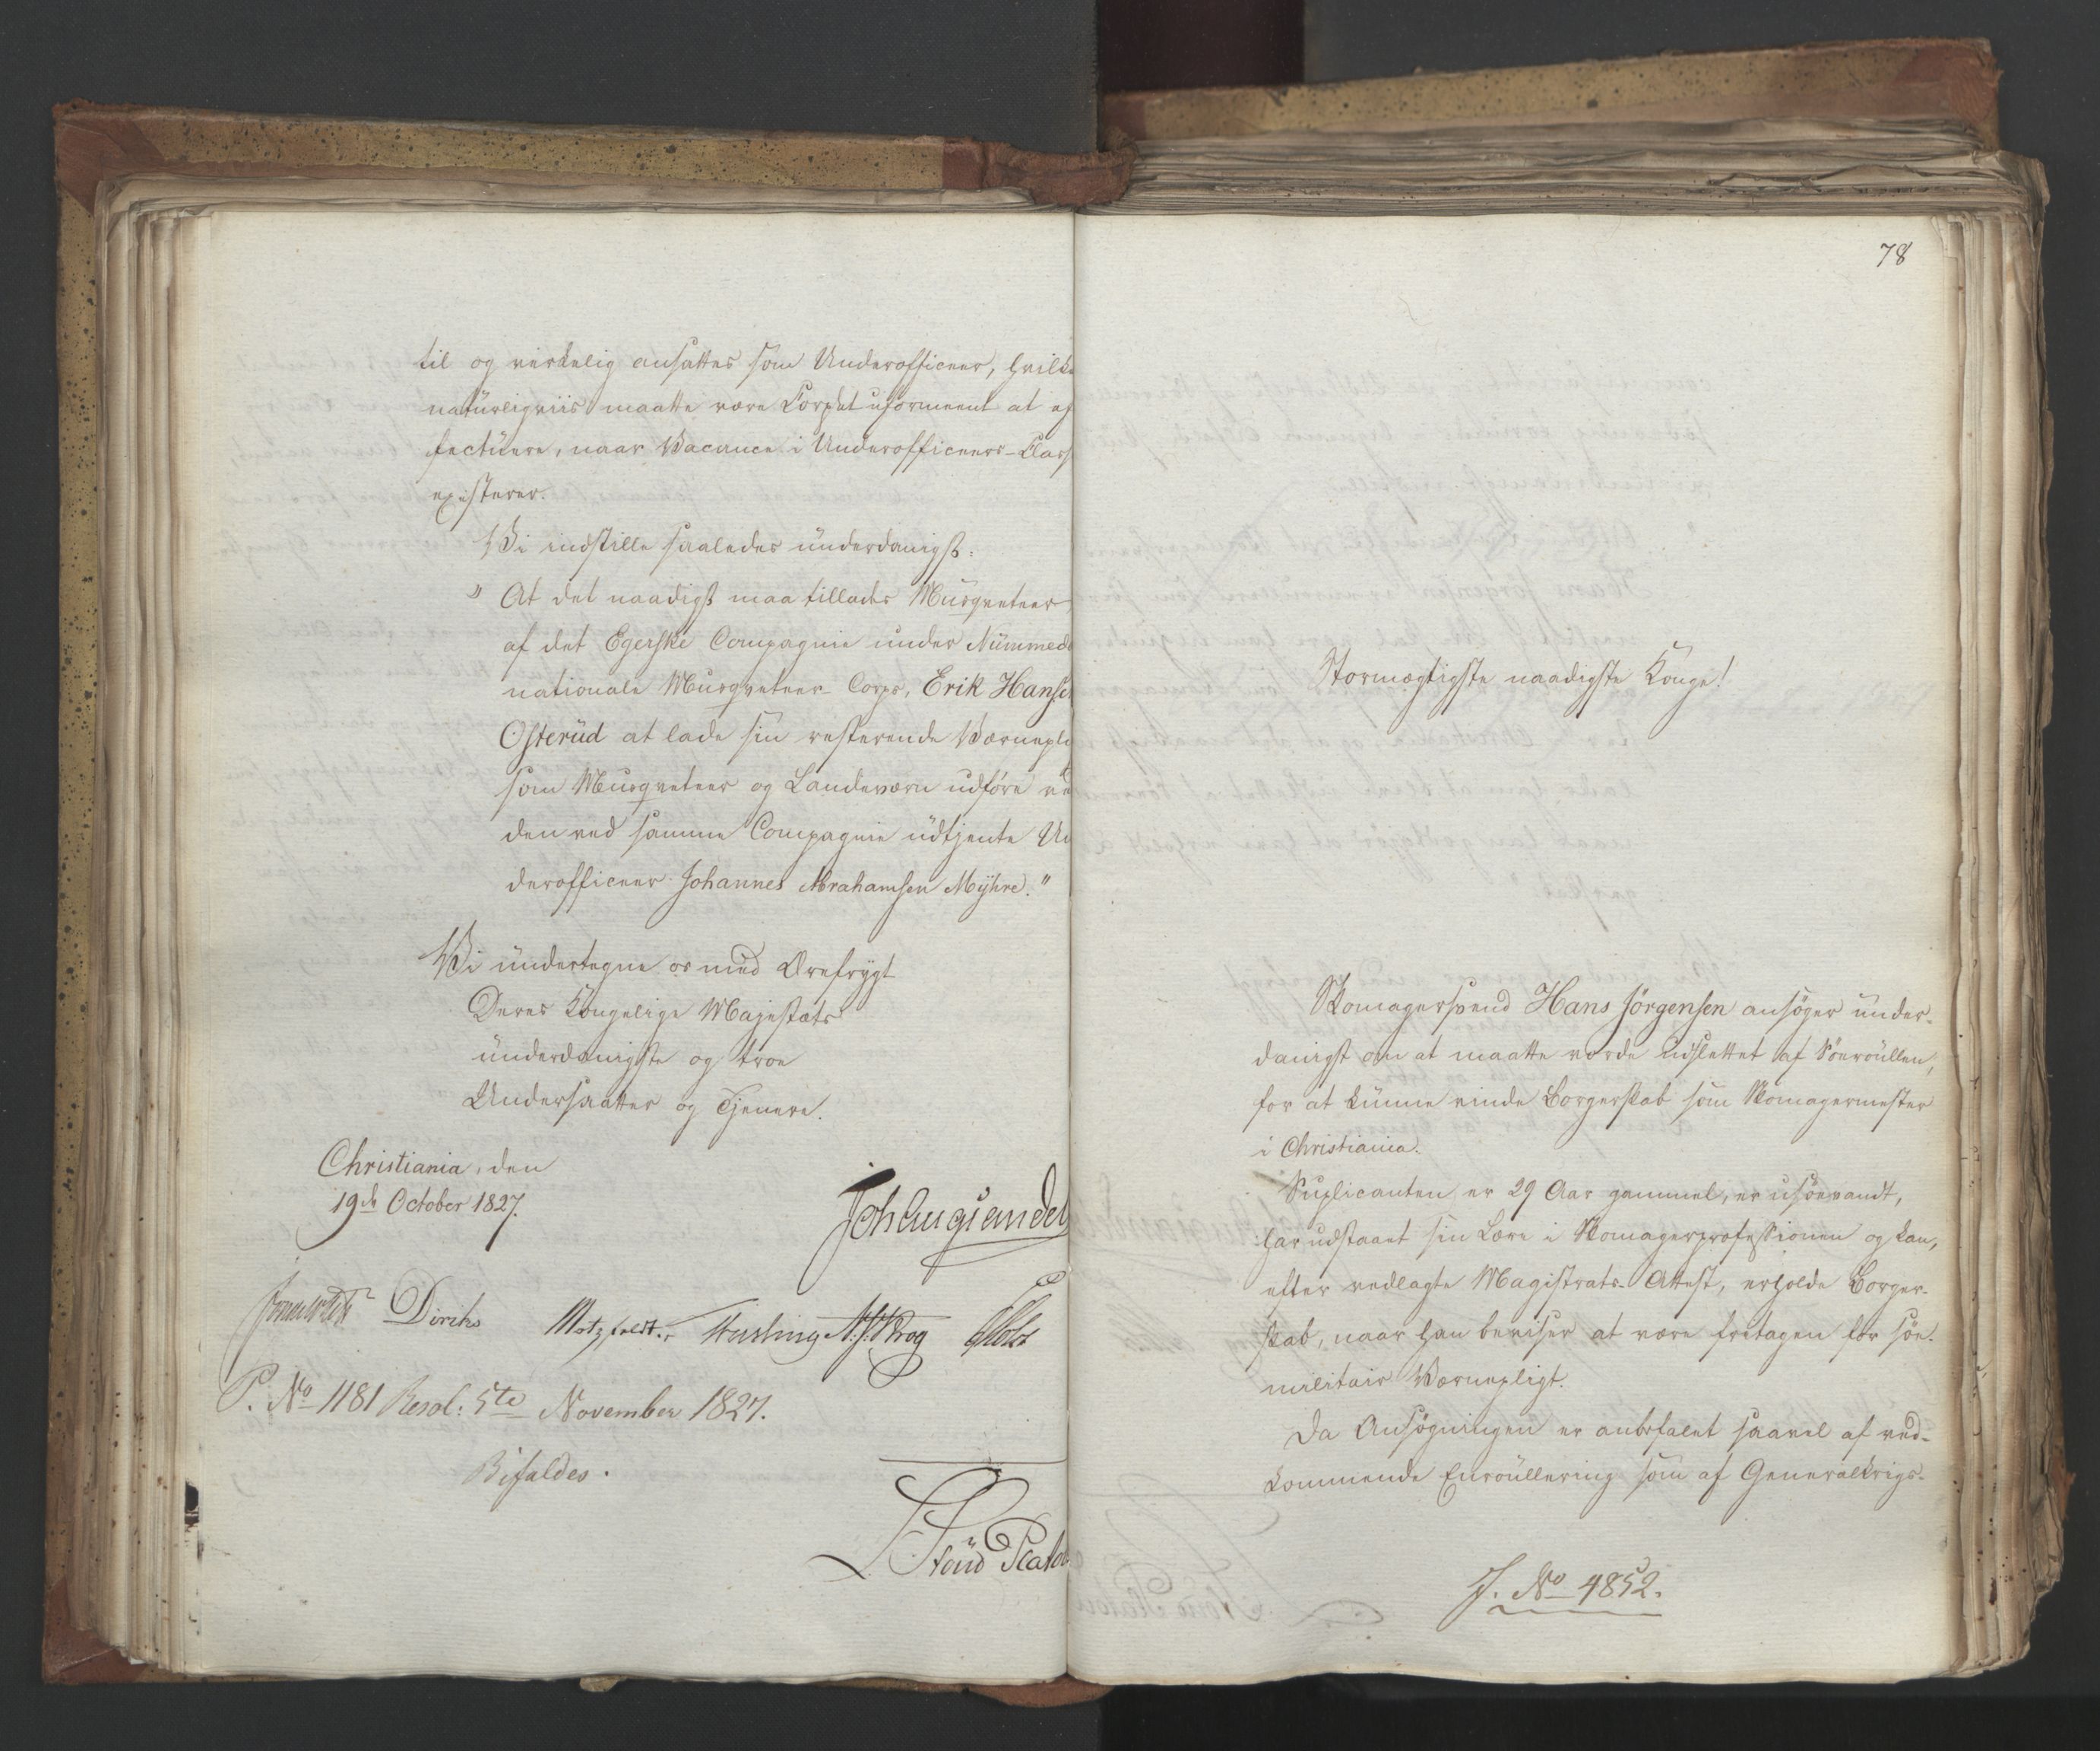 til og virkelig ansattes som Underofficeer, hvilke
natürligviis maatte være Corpset uformeent at ef
fectuere, naar Vacance i Underofficeers-Class
existerer.
Vi indstille saaledes ünderdanigst:
" At det naadigst maa tillades Musqveteer
af det Egerske Compagnie under Nümmeda
nationale Musqveteer-Corps, Erik Hanse
Osterüd at lade sin resterende Værnepli
som Musqveteer og Landeværn udføre ve
den ved samme Compagnie üdtjente Un
derofficeer Johannes Abrahamsen Mÿhre."
Vi ündertegne os med Ærefrygt
Deres Kongelige Majestæts
ünderdanigste og troe
Undersaatter og Tjenere.
Christiania, den
19de October 1827.
Joh Aug Sandel
Diriks Motzfeldt. N. J. Krog Holst
P. No 1181 Resol: 5te November 1827.
Bifaldes.
78
Stormægtigste naadigste Konge!
Skomagersvend Hans Jörgensen ansöger ünder-
danigst om at maatte vorde udslettet af Söeroüllen,
for at künne vinde Borgerskab som Skomagermester
i Christiania.
Suplicanten er 29 Aar gammel, er usöevandt,
har udstaaet sin Lære i Skomagerprofessionen og kan,
efter vedlagte Magistrats-Attest, erholde Borger-
skab, naar han beviser at være fritagen for söe-
militair Værnepligt.
Da Ansögningen er anbefalet saavel af ved-
kommende Enroüllering som af Generalkrigs-
J. No 4852.